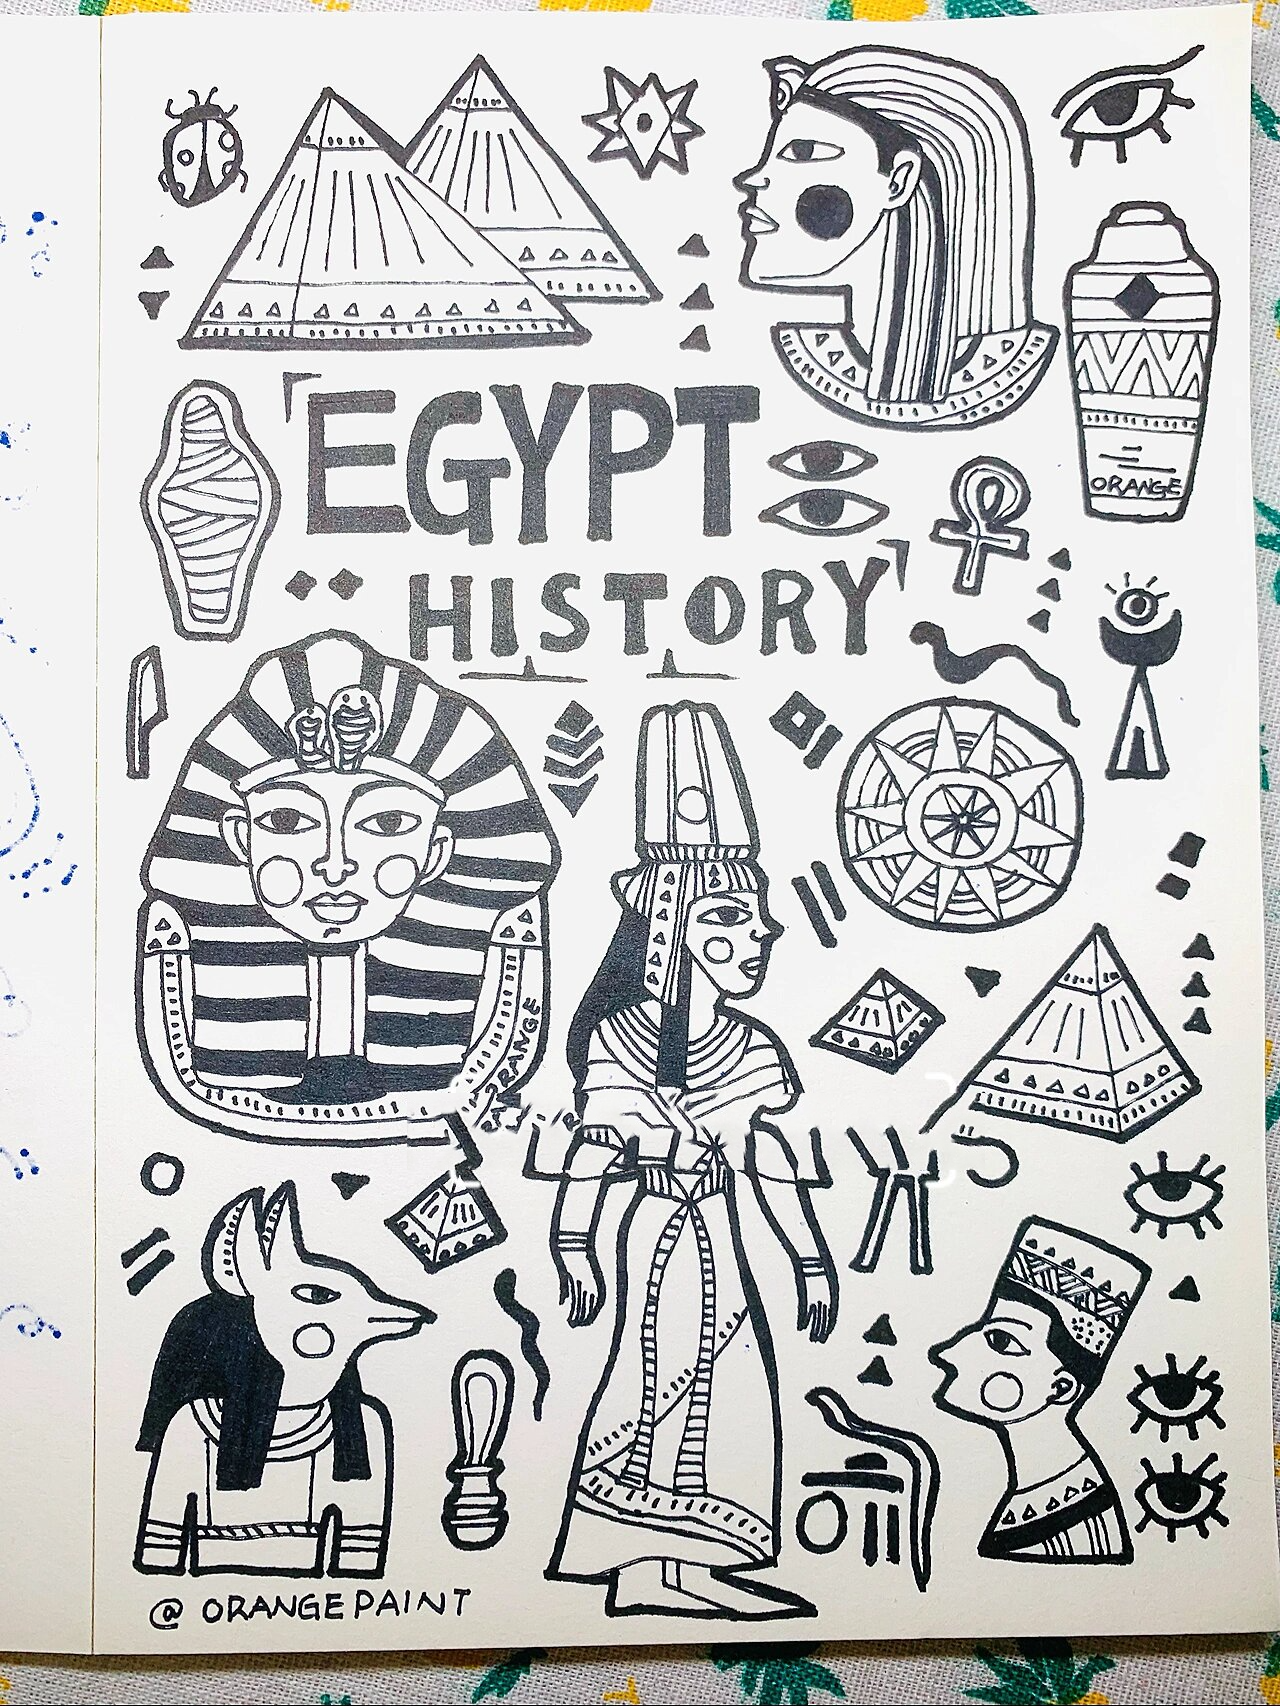 「EGYPT
HISTORY」
ORANGE
ORANGE
@ ORANGEPAINT